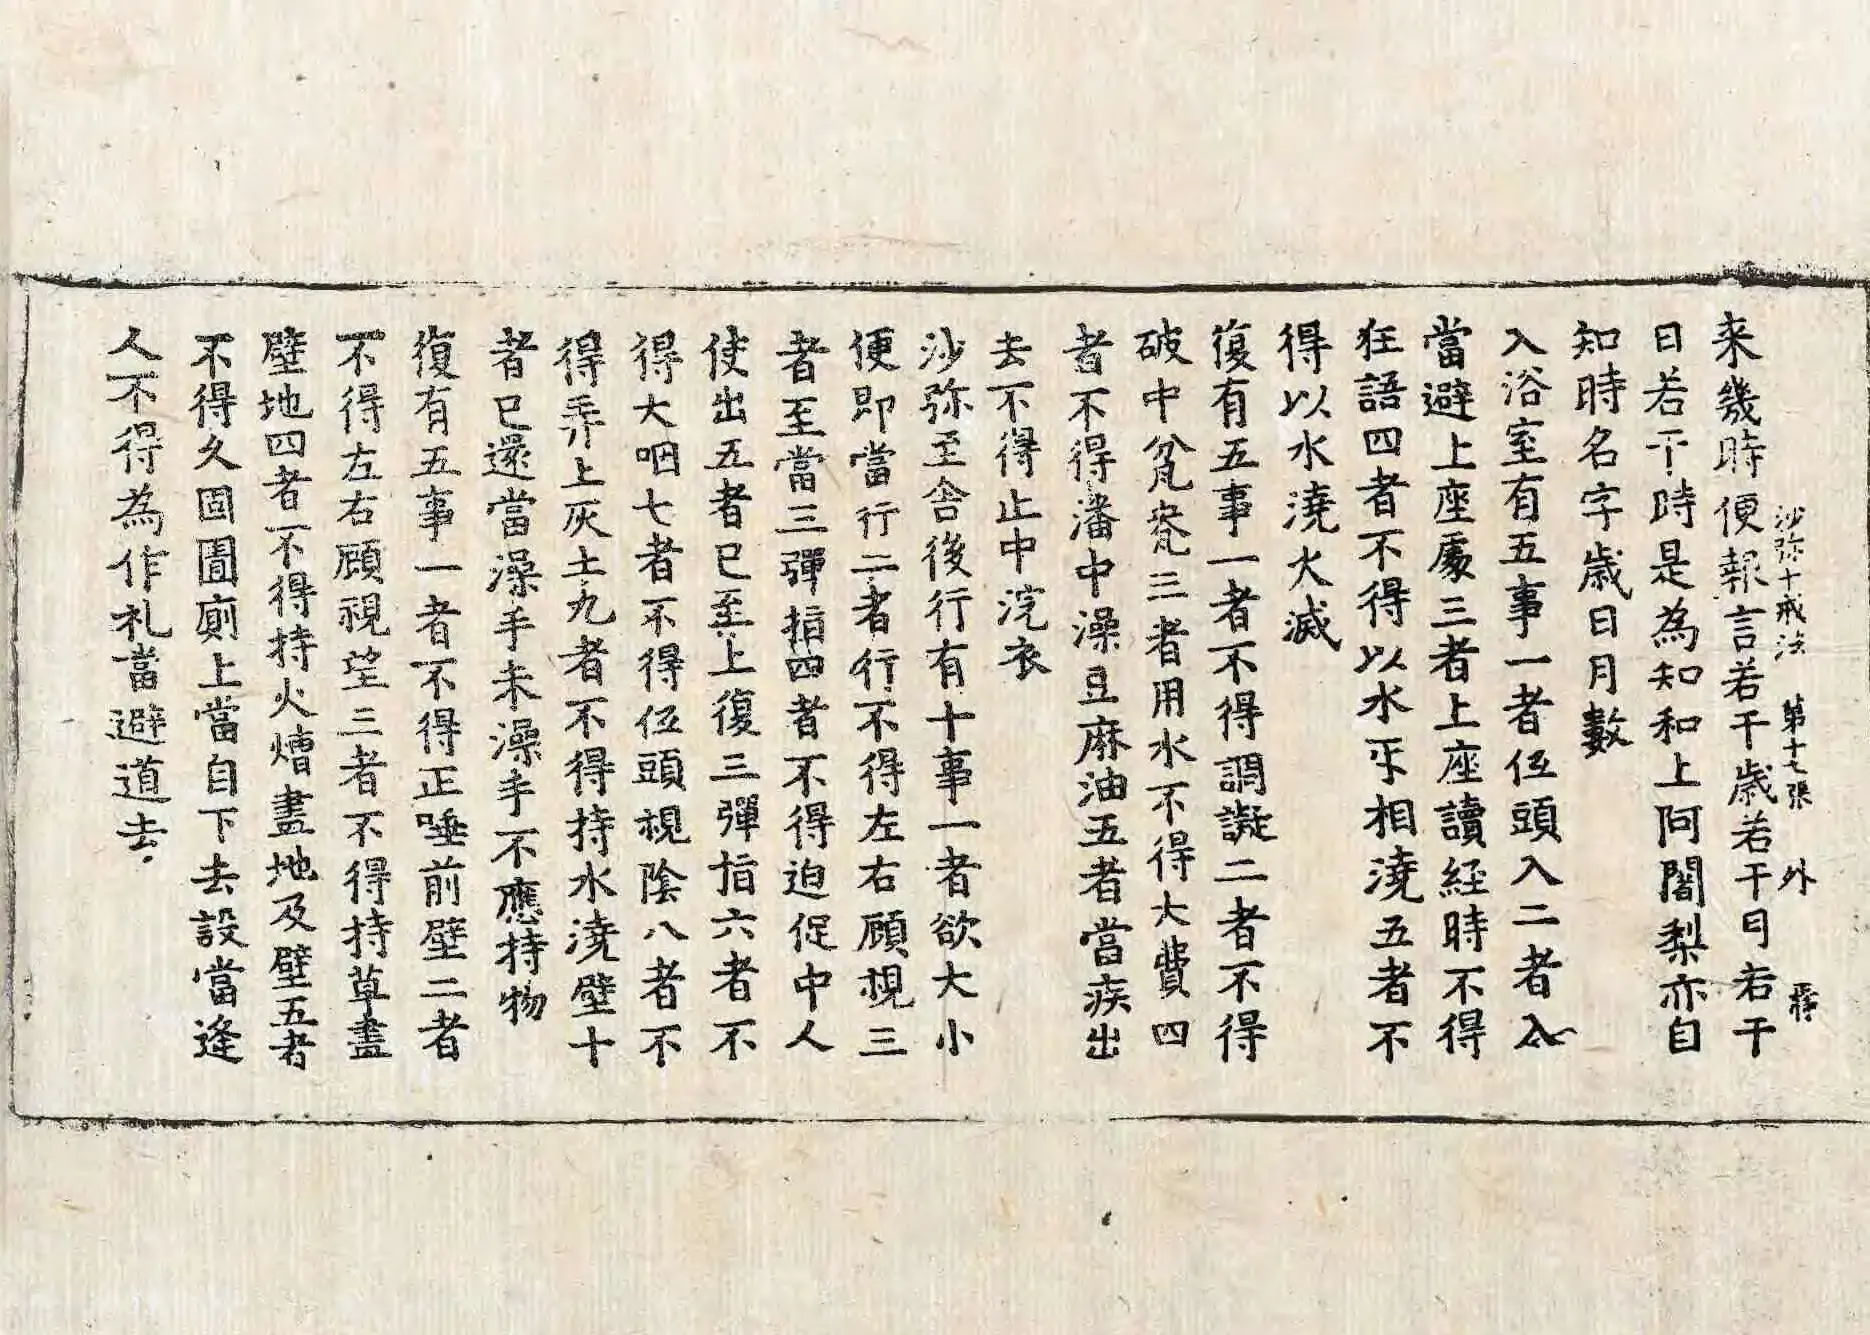 沙弥十戒法 第十七張 外
来幾時便報言若干歳若干日若干
日若干時是為知和上阿闍梨亦自
知時名字歳日月數
入浴室有五事一者伍頭入二者入
當避上座處三者上座讀経時不得
狂語四者不得以水㸦相澆五者不
得以水澆火滅
復有五事一者不得調譺二者不得
破中瓫瓮三者用水不得大費四
者不得潘中澡豆麻油五者當疾出
去不得止中浣衣
沙弥至舍後行有十事一者欲大小
便即當行二者行不得左右顧視三
者至當三彈指四者不得迫促中人
使出五者已至上復三彈指六者不
得大咽七者不得伍頭視陰八者不
得弄上灰土九者不得持水澆壁十
者已還當澡手未澡手不應持物
復有五事一者不得正唾前壁二者
不得左右顧視望三者不得持草畫
壁地四者不得持火燒畫地及壁五者
不得久固圊廁上當自下去設當逢
人不得為作礼當避道去